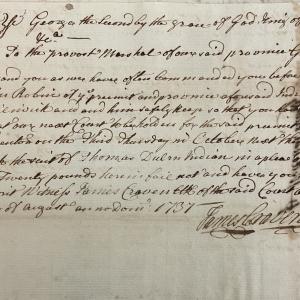 George the Second by the grace of God King of
&ca
To the provost Marshal of our said province G
and you as we have often Commanded you before
Robin of ye precint and province afores'd Indi
and him safely keep so that you have
at our next Court to be holden for the said precinct
on the Third Thursday in October next Then
the suit of Thomas Duen Indian in a plea
Twenty pounds herein fail not and have you
Witness James Craven Clk of the said Court
of August anno dom: 1737
James Craven